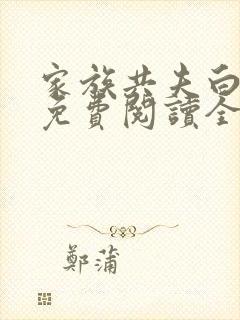 家族共夫白
免費閱讀全
鄭蒲